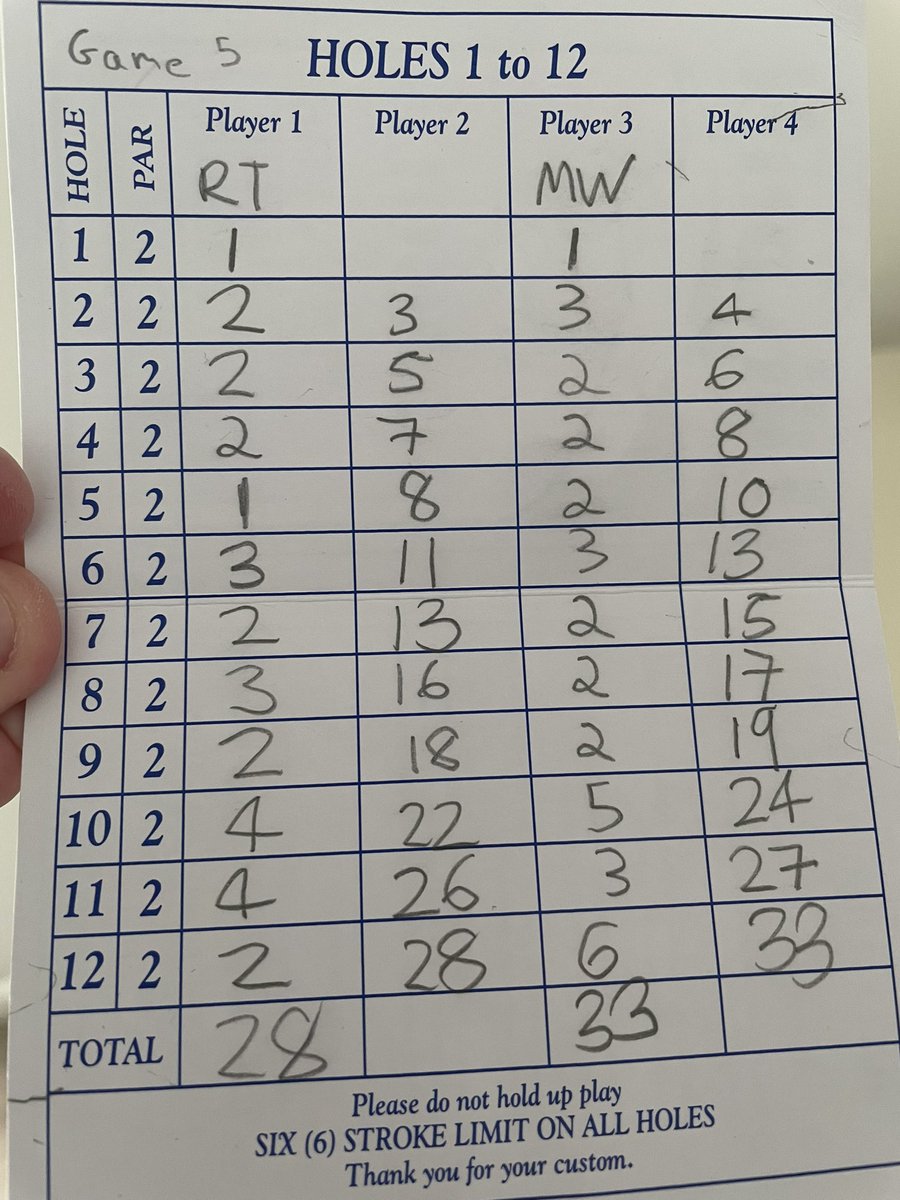 Game 5 HOLES 1 to 12
HOLE PAR Player 1 Player 2 Player 3 Player 4
RT MW
1 2 1 1
2 2 2 3 3 4
3 2 2 5 2 6
4 2 2 7 2 8
5 2 1 8 2 10
6 2 3 11 3 13
7 2 2 13 2 15
8 2 3 16 2 17
9 2 2 18 2 19
10 2 4 22 5 24
11 2 4 26 3 27
12 2 2 28 6 33
TOTAL 28 33
Please do not hold up play
SIX (6) STROKE LIMIT ON ALL HOLES
Thank you for your custom.